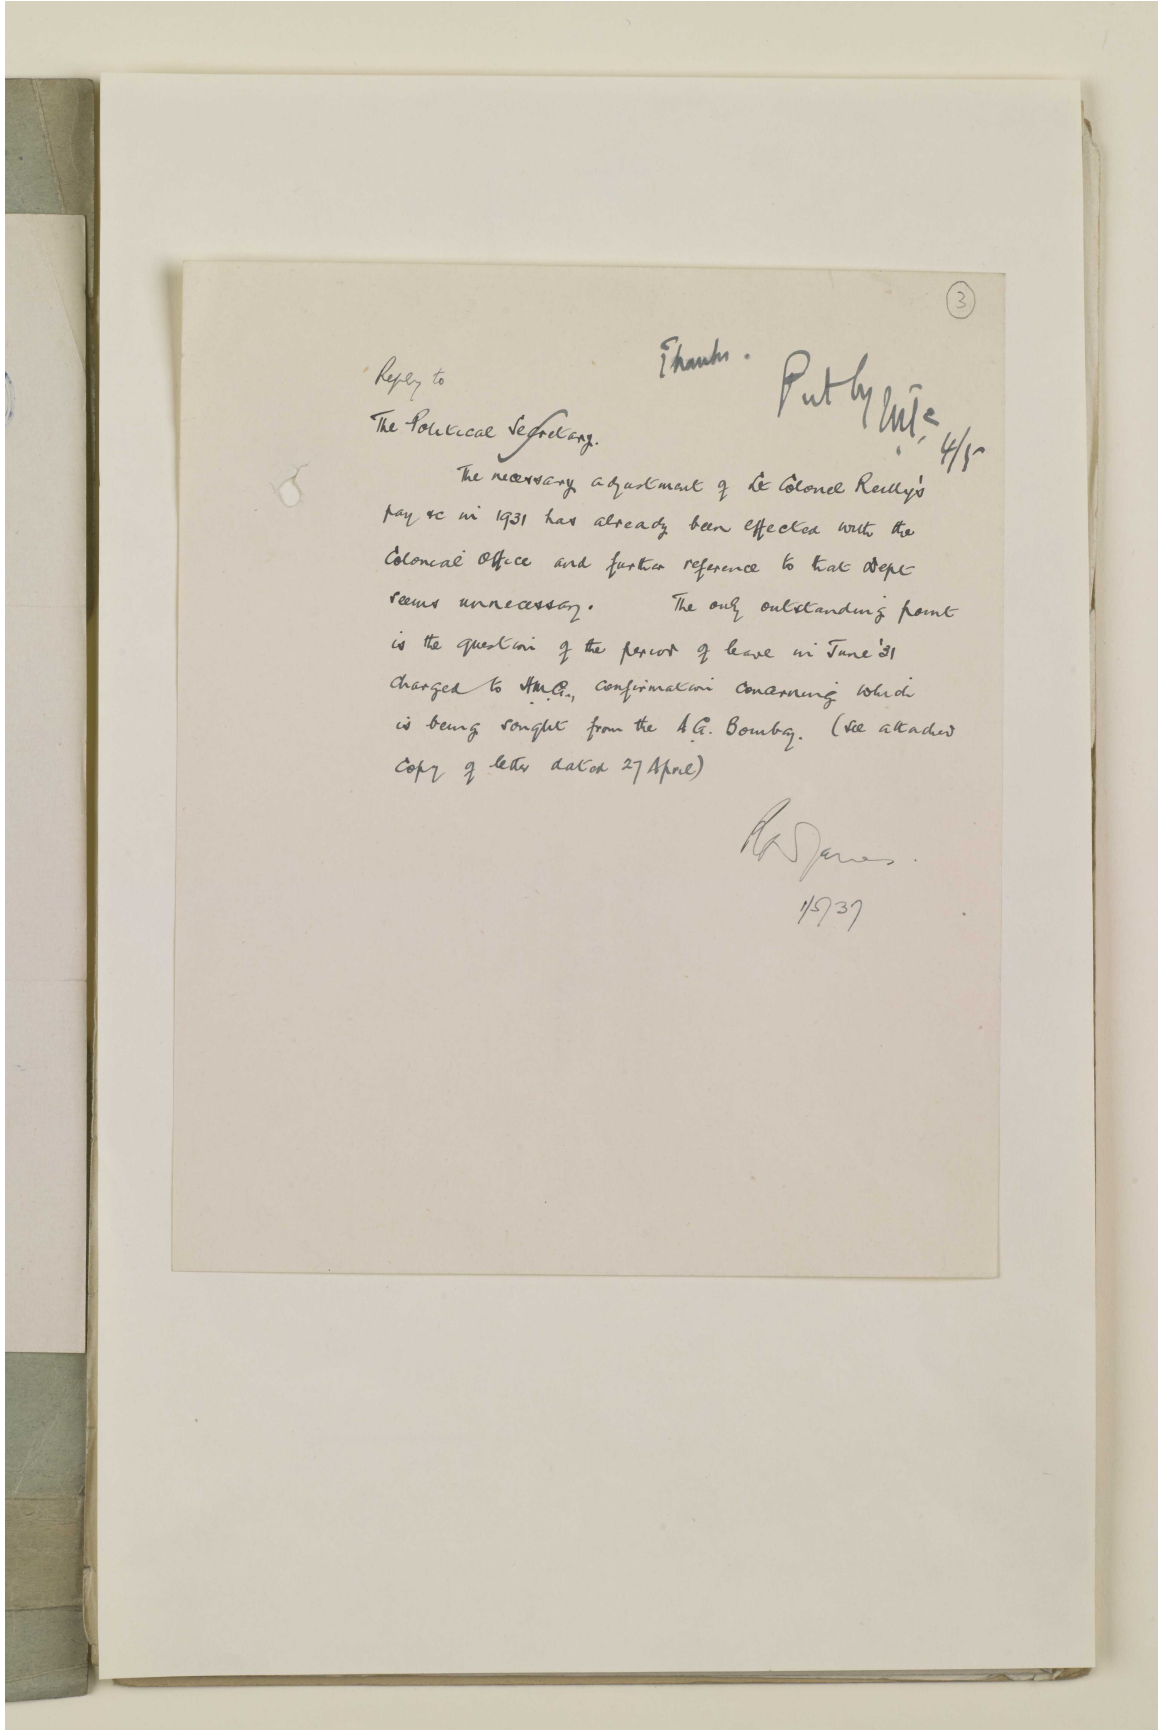 3
Thanks.
Put by
4/5
Reply to
The Political Secretary.
The necessary adjustment of Lt Colonel Reilly's
pay &c in 1931 has already been effected with the
Colonial Office and further reference to that Dept
seems unnecessary. The only outstanding point
is the question of the period of leave in June '31
charged to H.M.G., confirmation concerning which
is being sought from the A.G. Bombay. (See attached
copy of letter dated 27 April)
1/5/37